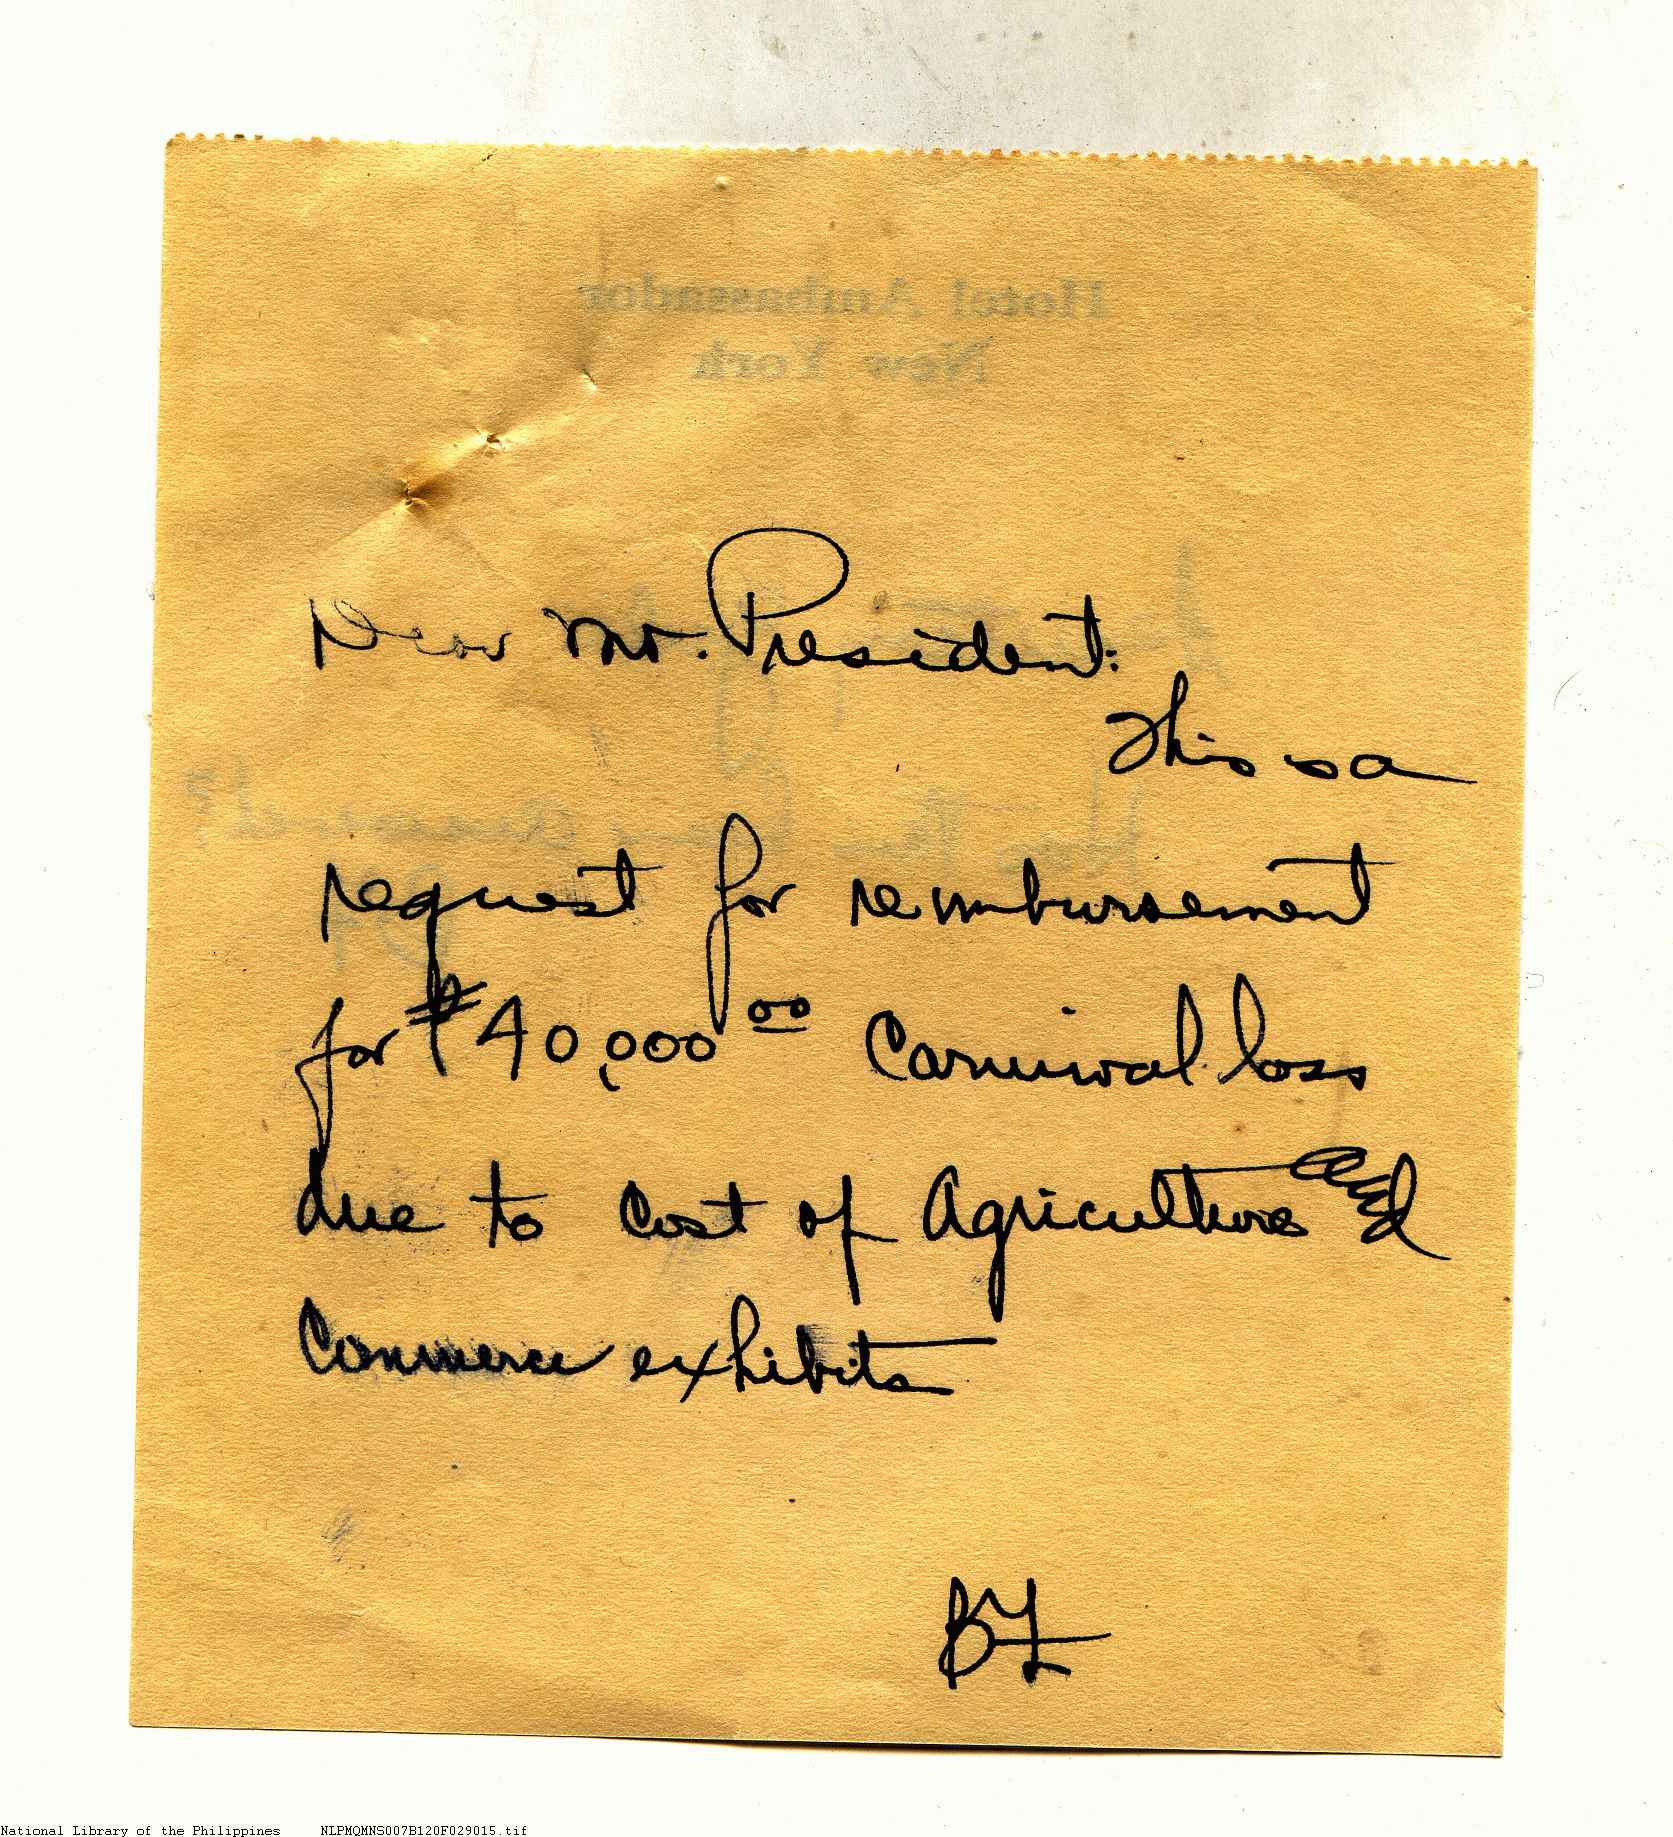 Hotel Ambassador
New York
Dear Mr. President:
This is a
request for reimbursement
for ₱40,000.00 Carnival loss
due to cost of Agriculture and
Commerce exhibits
National Library of the Philippines NLPMQMNS007B120F029015.tif